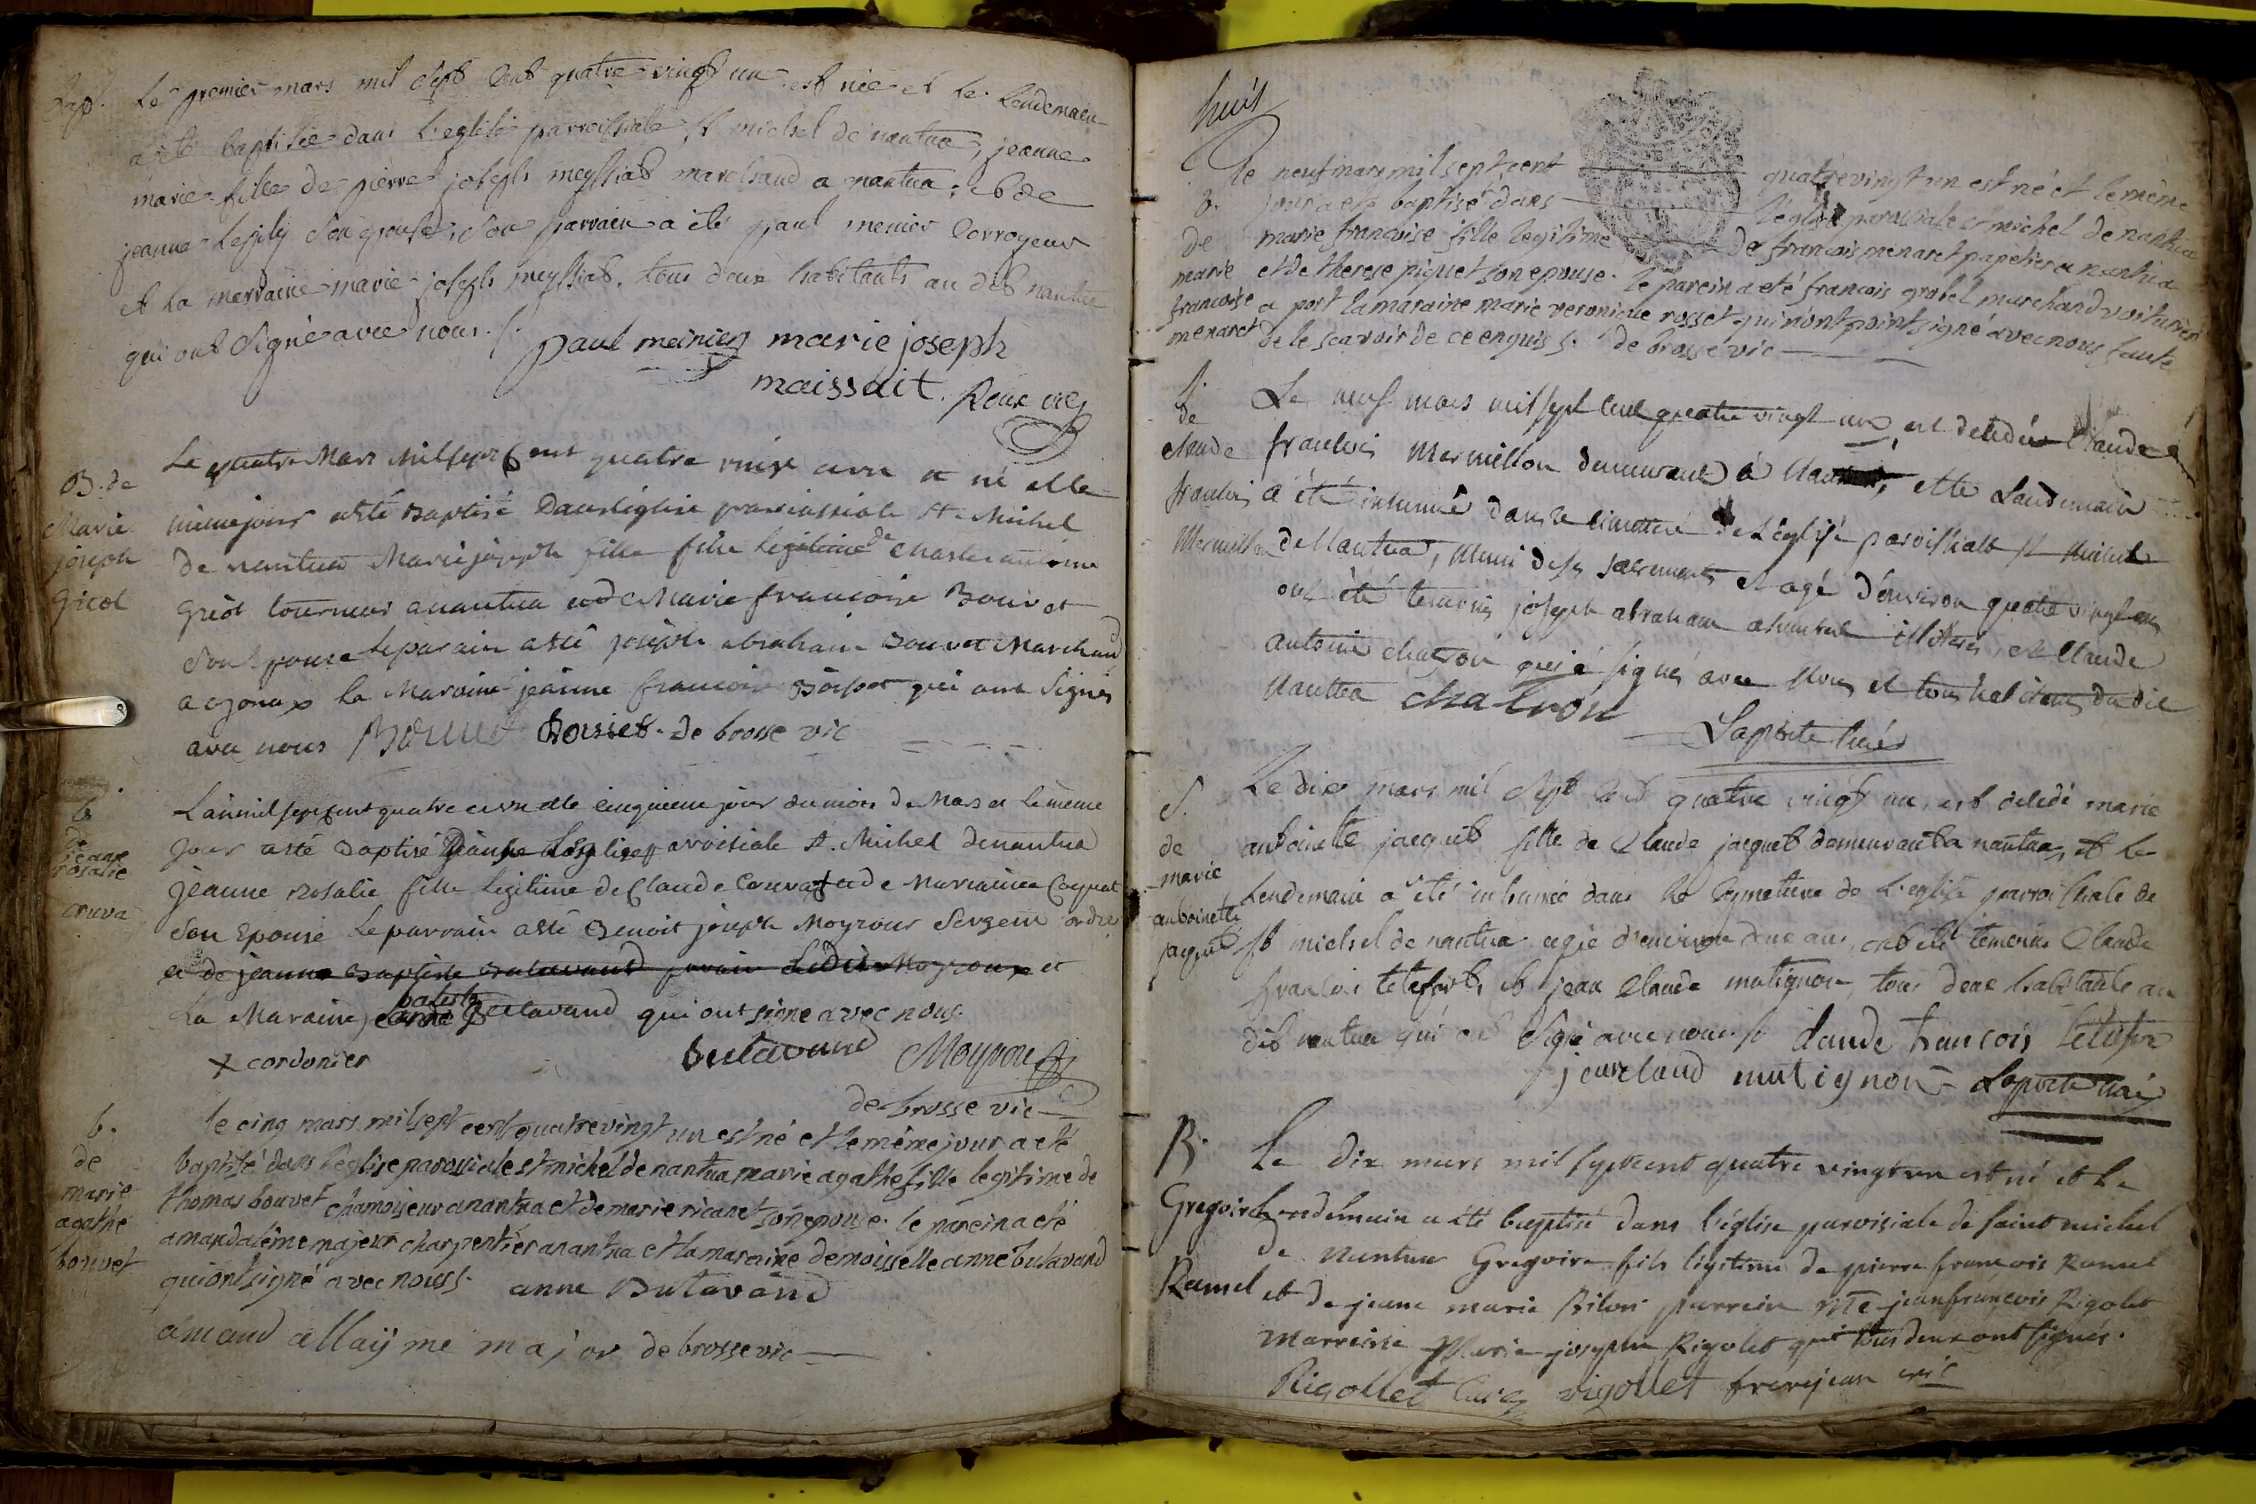 Bapt. Le premier mars mil sept cent quatre vingt un est née et le lendemain
a été baptisée dans l'eglise parroissiale st michel de nantua, jeanne
marie fille de pierre joseph meyssiat marchand a nantua, et de
jeanne son epouse, son parrain a été paul menier corroyeur
et la marraine marie joseph meyssiat, tous deux habitants au dit nantua
qui ont signé avec nous
paul meinier marie joseph
maissait. Roux vic
B. de
Marie
joseph
Griot
Le quatre Mars Mil sept Cent quatre vingt un est né et le
même jour a été Baptisé Dans léglise parroissiale st. Michel
de nantua Marie joseph fille fille legitime de Charles antoine
Griot tourneur a nantua et de Marie françoise Bouvet
son Epouse le parain a été joseph abraham Bouvet Marchand
a oyonax la Maraine jeanne françoise qui ont Signés
avec nous Bouvet de brosse vic
b
de
jeane
rosalie
cruva
L'an mil sept cent quatre et le cinquieme jour du mois de Mars et le même
Jour a été Baptisé parroisiale st. Michel de nantua
Jeanne Rosalie fille legitime de Claude et de
Son Epouse Le parrain a été Benoit joseph Moyroux Sergent
et de jeanne Baptiste Butavand et
La Maraine Butavand qui ont signe avec nous.
+ cordonier
Butavand Moyroux
de brosse vic
b.
de
marie
agathe
bouvet
le cinq mars mil sept cent quatre vingt un est né et le même jour a été
baptisé dans l'eglise paroissiale st michel de nantua marie agathe fille legitime de
thomas bouvet chamoiseur a nantua et de marie ricanet son epouse. le parein a été
amand aléme majeur charpentier a nantua et la maraine demoisselle anne butavand
qui ont signé avec nous. anne Butavand
amand allaÿ me major de brosse vic
huit
b.
de
marie
francoise
menaret
le neuf mars mil sept cent quatre vingt un est né et le même
jour a été baptisé dans l'église paroissiale st michel de nantua
marie françoise fille legitime de francois menaret papetier a nantua
et de therese piquet son epouse. le parein a eté francois grobel marchand voiturier
a port la maraine marie veronicle rosset qui n'ont point signé avec nous faute
de le scavoir de ce enquis s. de brosse vic
S.
de
claude
francois
Mermillon
Le neuf mars mil sept cent quatre vingt un est décédé Claude
francois Mermillon demeurant à Nantua, et le Landemain
a été inhumé dans le cimetiere de l'église paroissiale st michel
de Nantua, muni de ses sacrements et agé d'environ quatre vingt ans
ont été temoins joseph abraham illiteré, et Claude
antoine chatron qui a signé avec Nous et tous habitans du dit
Nantua chatron
Laporte curé
S.
de
marie
antoinette
jacquet
Le dix mars mil sept cent quatre vingt un est décédé marie
antoinette jacquet fille de Claude jacquet demeurant a nantua, et le
Lendemain a été inhumée dans le cymetiere de l'eglise parroissiale de
st michel de nantua agée d'environ ans, ont été temoins Claude
francois et jean Claude matignon, tous deux habitants au
dit nantua qui ont signé avec nous claude francois
jean claud mutignon Laporte curé
B.
Gregoire
Ramel
Le dix mars mil sept cent quatre vingt un est né et le
lendemain a été baptisé dans l'église paroisiale de saint michel
de Nantua Gregoire fils légitime de pierre françois Ramel
et de jeane marie parrein a été jean françois Rigolet
marreine Marie josephe Rigolet qui tous deux ont signés.
Rigollet rigollet frerejean vic